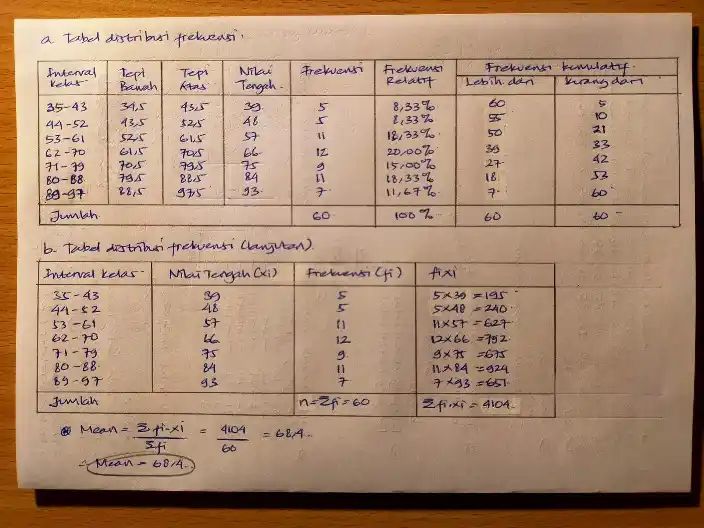 a. Tabel distribusi frekuensi.
Interval Kelas Tepi Bawah Tepi Atas Nilai Tengah. Frekuensi Frekuensi Relatif Frekuensi kumulatif.
Lebih dari Kurang dari
35-43 34,5 43,5 39 5 8,33% 60 5
44-52 43,5 52,5 48 5 8,33% 55 10
53-61 52,5 61,5 57 11 18,33% 50 21
62-70 61,5 70,5 66 12 20,00% 39 33
71-79 70,5 79,5 75 9 15,00% 27 42
80-88 79,5 88,5 84 11 18,33% 18 53
89-97 88,5 97,5 93 7 11,67% 7 60
Jumlah 60 100% 60 60
b. Tabel distribusi frekuensi (lanjutan)
Interval kelas Nilai Tengah (xi) Frekuensi (fi) fixi
35-43 39 5 5x39 =195
44-52 48 5 5x48 =240
53-61 57 11 11x57 =627
62-70 66 12 12x66 =792
71-79 75 9 9x75 =675
80-88 84 11 11x84 =924
89-97 93 7 7x93 =651
Jumlah n=Σfi=60 Σfi.xi = 4104
Mean = Σfi.xi / Σfi = 4104 / 60 = 68,4.
∴ Mean = 68,4.